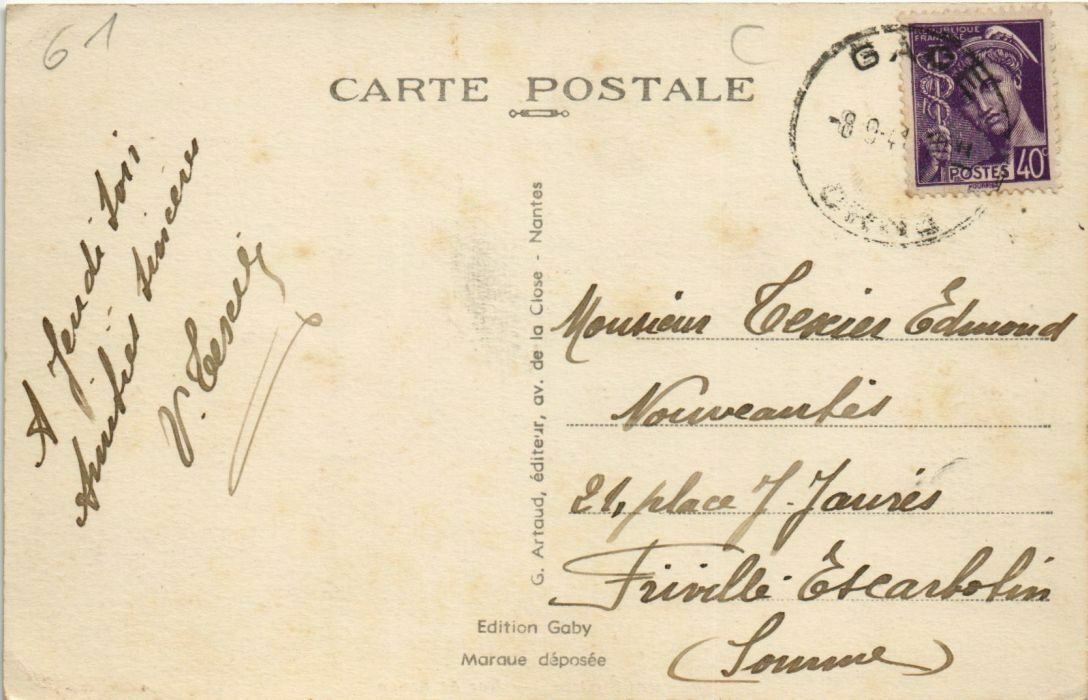 61
C
CARTE POSTALE
REPUBLIQUE
FRANÇAISE
POSTES 40c
GACE
ORNE
A Jeudi soir
Amitiés sincères
V. Texier
G. Artaud, éditeur, av. de la Close - Nantes
Monsieur Texier Edmond
Nouveautés
21, place J. Jaurès
Friville-Escarbotin
(Somme)
Edition Gaby
Marque déposée